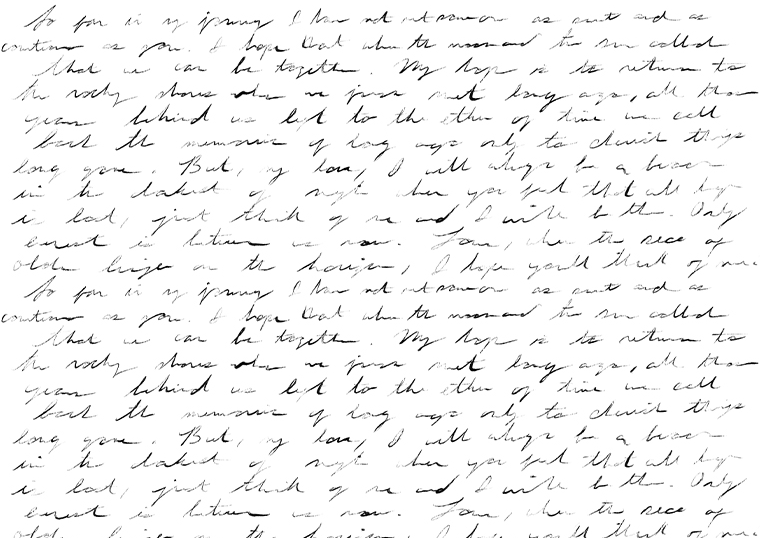 So far in my journey I have not met someone as sweet and as
as you. I hope that when the and the sun
that we can be together. My hope is to return to
the rocky shores where we first met long ago, all those
years behind us left to the ether of time we call
back the memories of long ago only to cherish things
long gone. But, my love, I will always be a beacon
in the darkest of night when you feel that all hope
is lost, just think of me and I will be there. Only
is between us now. Love, when the
older lingers on the horizon, I hope you'll think of me
So far in my journey I have not met someone as sweet and as
as you. I hope that when the and the sun
that we can be together. My hope is to return to
the rocky shores where we first met long ago, all those
years behind us left to the ether of time we call
back the memories of long ago only to cherish things
long gone. But, my love, I will always be a beacon
in the darkest of night when you feel that all hope
is lost, just think of me and I will be there. Only
is between us now. Love, when the